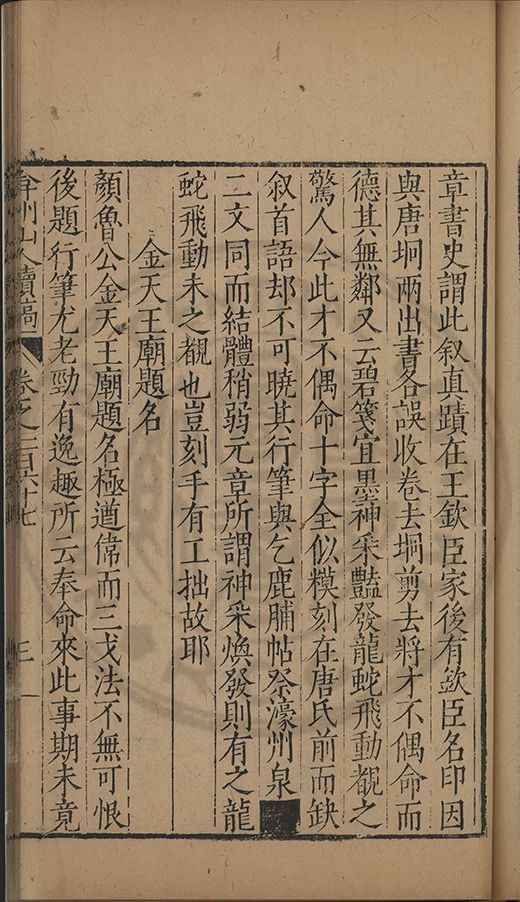 章書史謂此叙真蹟在王欽臣家後有欽臣名印因
與唐坰兩出書各誤收卷去坰剪去將才不偶命而
德其無鄰又云碧箋宜墨神采豔發龍蛇飛動覩之
驚人今此才不偶命十字全似模刻在唐氏前而缺
叙首語却不可曉其行筆與乞鹿脯帖祭濠州泉
二文同而結體稍弱元章所謂神采煥發則有之龍
蛇飛動未之覩也豈刻手有工拙故耶
金天王廟題名
顏魯公金天王廟題名極遒偉而三戈法不無可恨
後題行筆尤老勁有逸趣所云奉命來此事期未竟
弇州山人續稿
卷之一百六十七
三